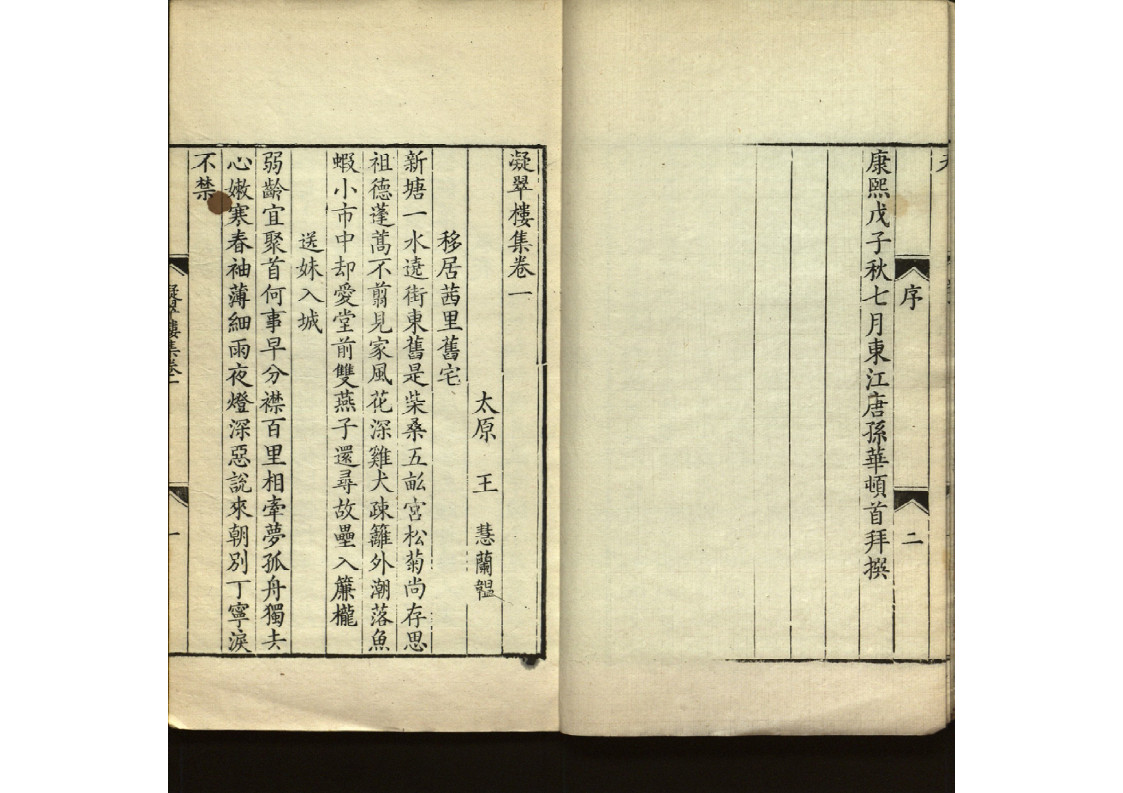 康熙戊子秋七月東江唐孫華頓首拜撰
序
二
凝翠樓集卷一
太原 王 慧蘭韞
移居茜里舊宅
新塘一水遶街東舊是柴桑五畝宮松菊尚存思
祖德蓬蒿不翦見家風花深雞犬疎籬外潮落魚
蝦小市中却愛堂前雙燕子還尋故壘入簾櫳
送妹入城
弱齡宜聚首何事早分襟百里相牽夢孤舟獨去
心嫩寒春袖薄細雨夜燈深惡說來朝別丁寧淚
不禁
凝翠樓集卷一
一